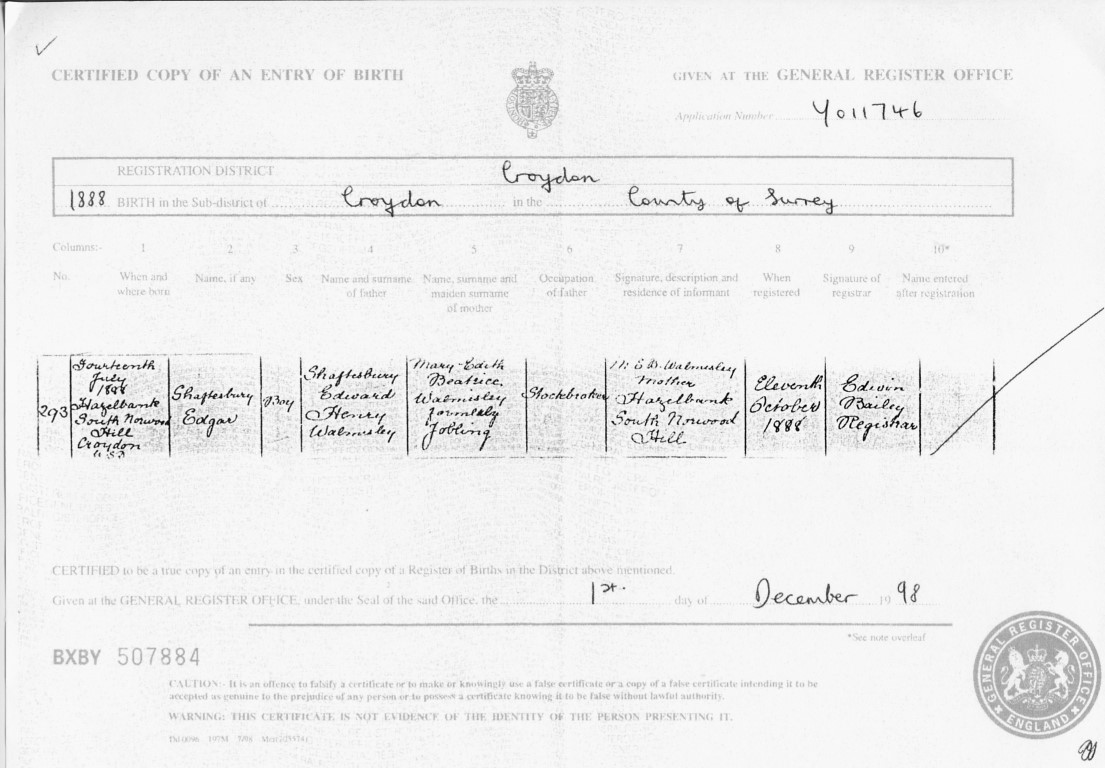 CERTIFIED COPY OF AN ENTRY OF BIRTH
GIVEN AT THE GENERAL REGISTER OFFICE
Application Number Y011746
REGISTRATION DISTRICT Croydon
1888 BIRTH in the Sub-district of Croydon in the County of Surrey
Columns:- 1 2 3 4 5 6 7 8 9 10*
No.
When and
where born
Name, if any
Sex
Name and surname
of father
Name, surname and
maiden surname
of mother
Occupation
of father
Signature, description and
residence of informant
When
registered
Signature of
registrar
Name entered
after registration
293
Fourteenth
July
1888
Hazelbank
South Norwood
Hill
Croydon
Shaftesbury
Edgar
Boy
Shaftesbury
Edward
Henry
Walmesley
Mary Edith
Beatrice
Walmesley
formerly
Jobling
Stockbroker
Walmesley
Mother
Hazelbank
South Norwood
Hill
Eleventh
October
1888
Edwin
Bailey
Registrar
CERTIFIED to be a true copy of an entry in the certified copy of a Register of Births in the District above mentioned.
Given at the GENERAL REGISTER OFFICE, under the Seal of the said Office, the 1st. day of December 1998
*See note overleaf
BXBY 507884
CAUTION:- It is an offence to falsify a certificate or to make or knowingly use a false certificate or a copy of a false certificate intending it to be
accepted as genuine to the prejudice of any person or to possess a certificate knowing it to be false without lawful authority.
WARNING: THIS CERTIFICATE IS NOT EVIDENCE OF THE IDENTITY OF THE PERSON PRESENTING IT.
GENERAL REGISTER OFFICE
ENGLAND